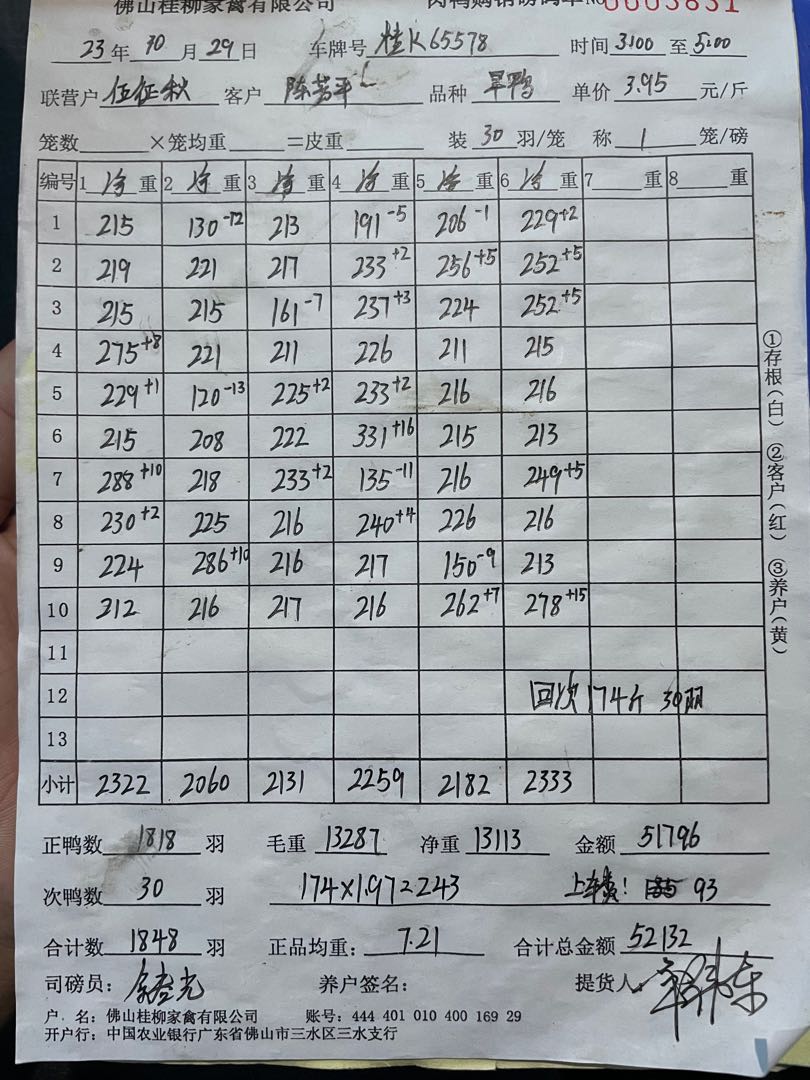 佛山桂柳家禽有限公司 肉鸭购销磅码单 No 0003831
23年10月29日 车牌号 桂K65578 时间 3:00 至 5:00
联营户 伍征秋 客户 陈芳平 品种 旱鸭 单价 3.95 元/斤
笼数 ×笼均重 =皮重 装 30 羽/笼 称 1 笼/磅
编号 1 净 重 2 净 重 3 净 重 4 净 重 5 净 重 6 净 重 7 重 8 重
1 215 130-12 213 191-5 206-1 229+2
2 219 221 217 233+2 256+5 252+5
3 215 215 161-7 237+3 224 252+5
4 275+8 221 211 226 211 215
5 229+1 120-13 225+2 233+2 216 216
6 215 208 222 331+16 215 213
7 288+10 218 233+2 135-11 216 249+5
8 230+2 225 216 240+4 226 216
9 224 286+10 216 217 150-9 213
10 212 216 217 216 262+7 278+15
11
12 回次 174斤 30羽
13
小计 2322 2060 2131 2259 2182 2333
①存根(白) ②客户(红) ③养户(黄)
正鸭数 1818 羽 毛重 13287 净重 13113 金额 51796
次鸭数 30 羽 174×1.97=243 上车费: 93
合计数 1848 羽 正品均重: 7.21 合计总金额 52132
司磅员: 养户签名: 提货人:
户 名: 佛山桂柳家禽有限公司 账号: 444 401 010 400 169 29
开户行: 中国农业银行广东省佛山市三水区三水支行